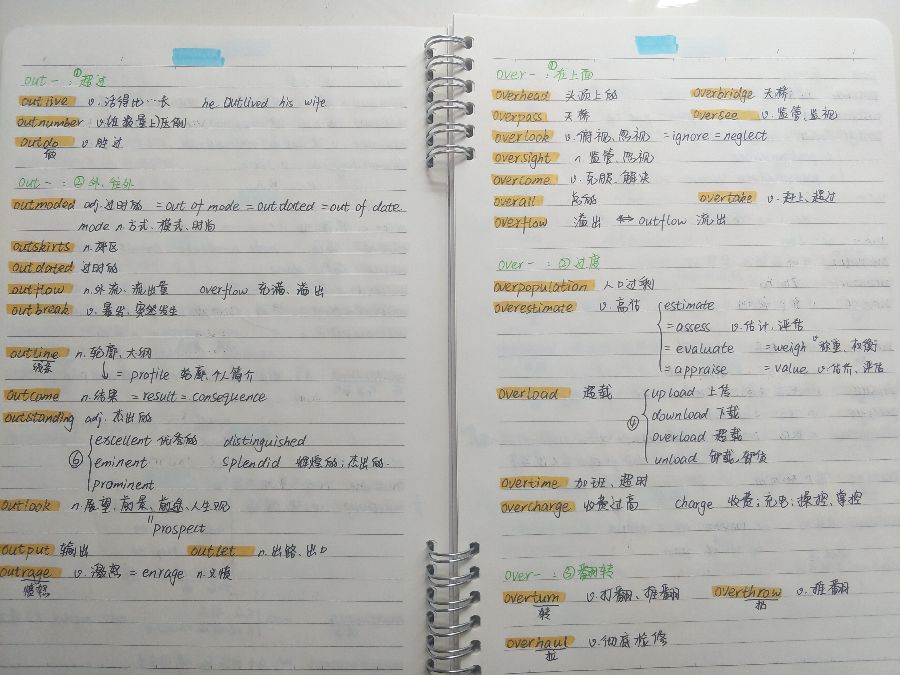 out- : ①超过
outlive v.活得比…长 he outlived his wife
outnumber v.(在数量上)压倒
outdo v.胜过
做
out- : ②外、往外
outmoded adj.过时的 = out of mode = outdated = out of date
mode n.方式、模式、时尚
outskirts n.郊区
outdated 过时的
outflow n.外流、流出量 overflow 充满、溢出
outbreak v.暴发、突然发生
outline n.轮廓、大纲
线条
= profile 轮廓、个人简介
outcome n.结果 = result = consequence
outstanding adj.杰出的
⑥ excellent 优秀的 distinguished
eminent splendid 辉煌的;杰出的.
prominent
outlook n.展望、前景、前途、人生观
"prospect
output 输出 outlet n.出路、出口
outrage v.激怒 = enrage n.义愤
愤怒
over- : ①在上面
overhead 头顶上的 overbridge 天桥
overpass 天桥 oversee v.监管、监视
overlook v.俯视、忽视 = ignore = neglect
oversight n.监管、忽视
overcome v.克服、解决
overall 总的 overtake v.赶上、超过
overflow 溢出 ⇔ outflow 流出
over- : ②过度
overpopulation 人口过剩
overestimate v.高估 estimate
= assess v.估计、评估
= evaluate = weigh v.称重、权衡
= appraise = value v.估价、评估
overload 超载 upload 上传
④ download 下载
overload 超载
unload 卸载、卸货
overtime 加班、超时
overcharge 收费过高 charge 收费;充电;操控、掌控
over- : ③翻转
overturn v.打翻、推翻 overthrow v.推翻
转 扔
overhaul v.彻底检修
拉